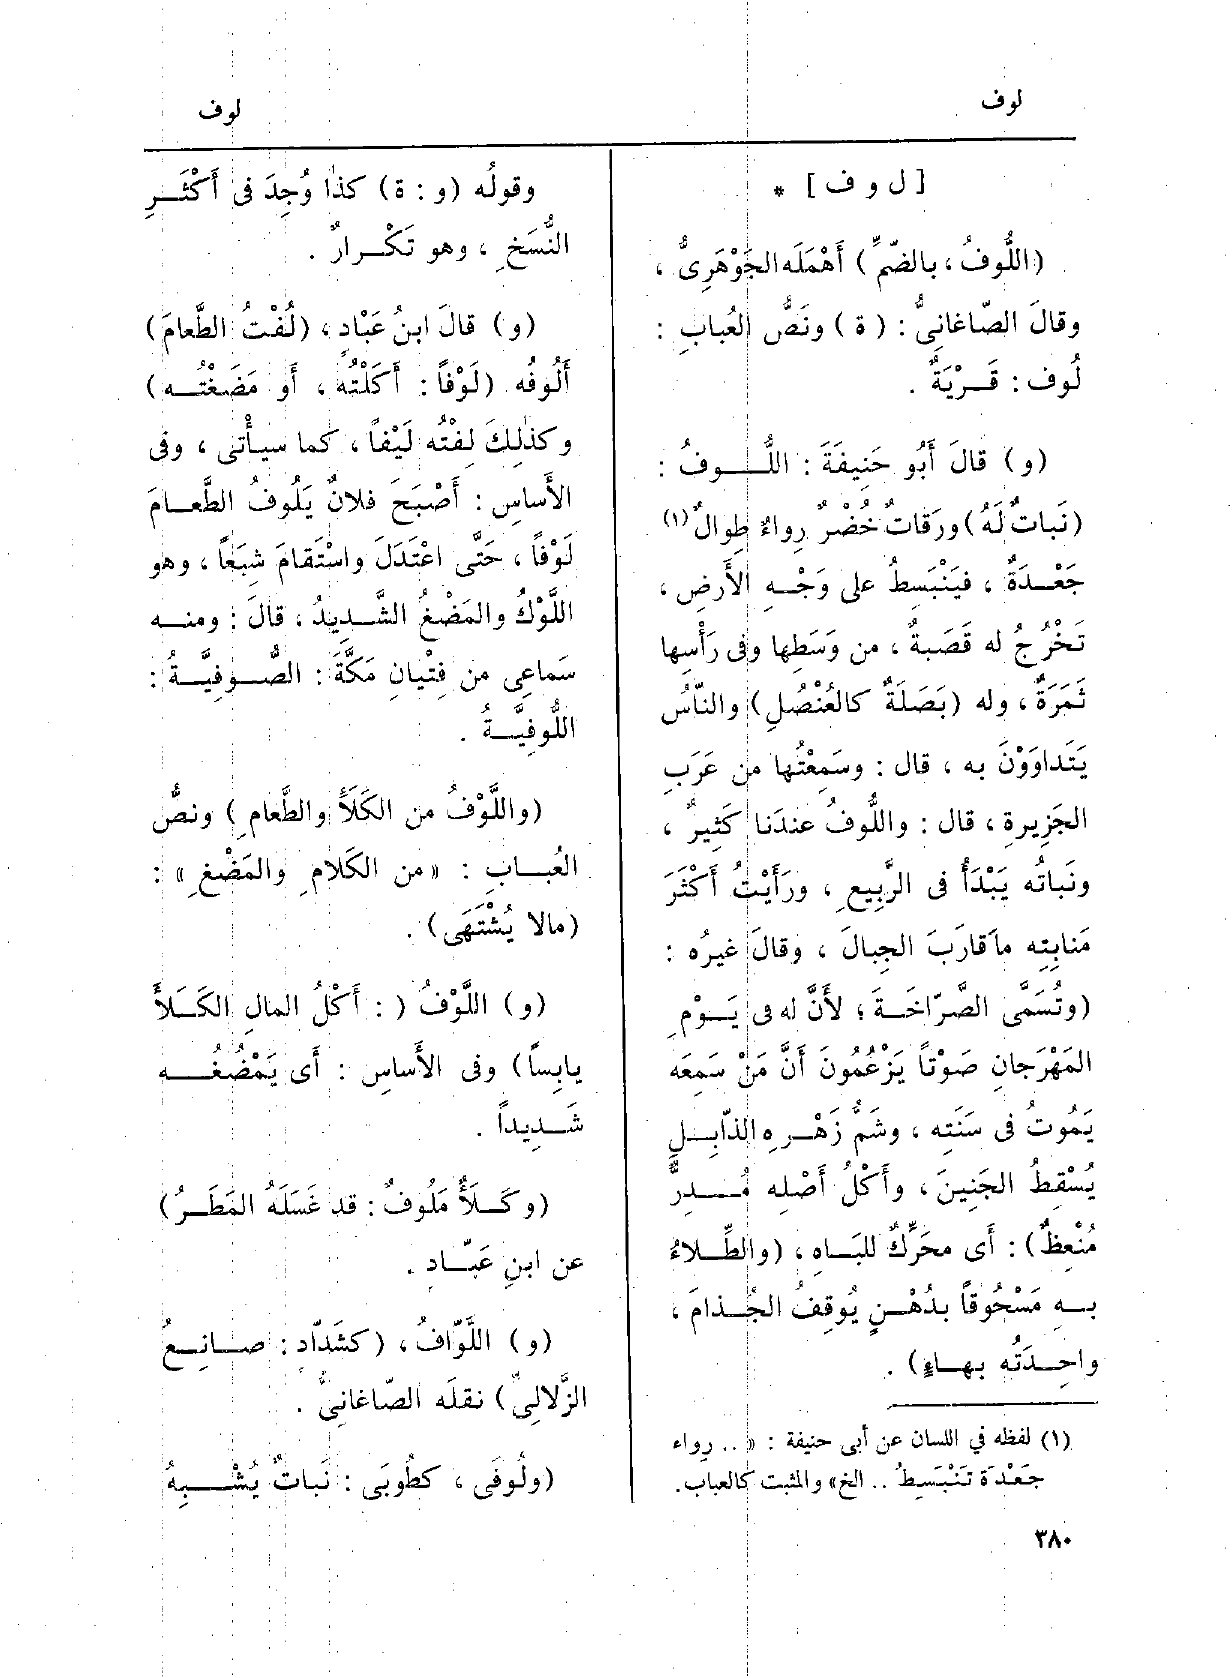 لوف
لوف
[ ل و ف ] *
(اللُّوفُ ، بالضّمِّ) أَهْمَلَه الجَوْهَرِىُّ ،
وقالَ الصّاغانِىُّ : (ة) ونَصُّ العُبابِ :
لُوف : قَــرْيَةٌ .
(و) قالَ أَبُو حَنِيفَةَ : اللُّــوفُ :
(نَباتٌ لَهُ) ورَقاتٌ خُضْرٌ رِواءٌ طِوالٌ (١)
جَعْــدَةٌ ، فيَنْبَسِطُ على وَجْــهِ الأَرضِ ،
تَخْرُجُ له قَصَبةٌ ، من وَسَطِها وفى رَأْسِها
ثَمَرَةٌ ، وله (بَصَلَةٌ كالعُنْصُلِ) والنّاسُ
يَتَداوَوْنَ به ، قال : وسَمِعْتُها من عَرَبِ
الجَزِيرةِ ، قال : واللُّوفُ عندَنا كَثِيرٌ ،
ونَباتُه يَبْدَأُ فى الرَّبِيعِ ، ورَأَيْتُ أَكْثَرَ
مَنابِتِه ما قارَبَ الجِبالَ ، وقالَ غيرُه :
(وتُسَمَّى الصَّرّاخَــةَ ؛ لأَنَّ له فى يَــوْمِ
المَهْرَجانِ صَوْتاً يَزْعُمُونَ أَنَّ مَنْ سَمِعَه
يَمُوتُ فى سَنَتِه ، وشَمُّ زَهْــرِه الذّابِــلِ
يُسْقِطُ الجَنِينَ ، وأَكْلُ أَصْلِه مُــدِرٌّ
مُنْعِظٌ) : أَى محَرِّكٌ للبَــاهِ ، (والطِّــلاءُ
بــهِ مَسْحُوقاً بدُهْــنٍ يُوقِفُ الجُــذامَ ،
واحِــدَتُه بهــاءٍ) .
(١) لفظه في اللسان عن أبى حنيفة : « .. رِواء
جَعْدَة تَنْبَسِطُ .. الخ» والمثبت كالعباب.
٣٨٠
وقولُه (و : ة) كذا وُجِدَ فى أَكْثَــرِ
النُّسَخِ ، وهو تَكْــرارٌ .
(و) قالَ ابنُ عَبّادٍ ، (لُفْتُ الطَّعامَ)
أَلُوفُه (لَوْفاً : أَكَلْتُه ، أو مَضَغْتُــه)
وكذٰلِكَ لِفْتُه لَيْفاً ، كما سيأْتى ، وفى
الأَساسِ : أَصْبَحَ فلانٌ يَلُوفُ الطَّعــامَ
لَوْفاً ، حَتَّى اعْتَدَلَ واسْتَقامَ شِبَعاً ، وهو
اللَّوْكُ والمَضْغُ الشَّــدِيدُ ، قالَ : ومنــه
سَماعِى من فِتْيانِ مَكَّةَ : الصُّــوفِيَّــةُ :
اللُّوفِيَّــةُ .
(واللَّوْفُ من الكَلَأ والطَّعامِ) ونصُّ
العُبــابِ : «من الكَلامِ والمَضْغِ» :
(مالا يُشْتَهَى) .
(و) اللَّوْفُ ( : أَكْلُ المالِ الكَــلأَ
يابِساً) وفى الأَساسِ : أَى يَمْضُغُــه
شَــدِيداً .
(وكَــلَأٌ مَلُوفٌ : قد غَسَلَهُ المَطَــرُ)
عن ابنِ عَبّــادٍ .
(و) اللَّوّافُ ، (كشَدّادٍ : صــانِــعُ
الزَّلالِىِّ) نقلَه الصّاغانِىُّ .
(ولُوفَى ، كطُوبَى : نَباتٌ يُشْــبِهُ